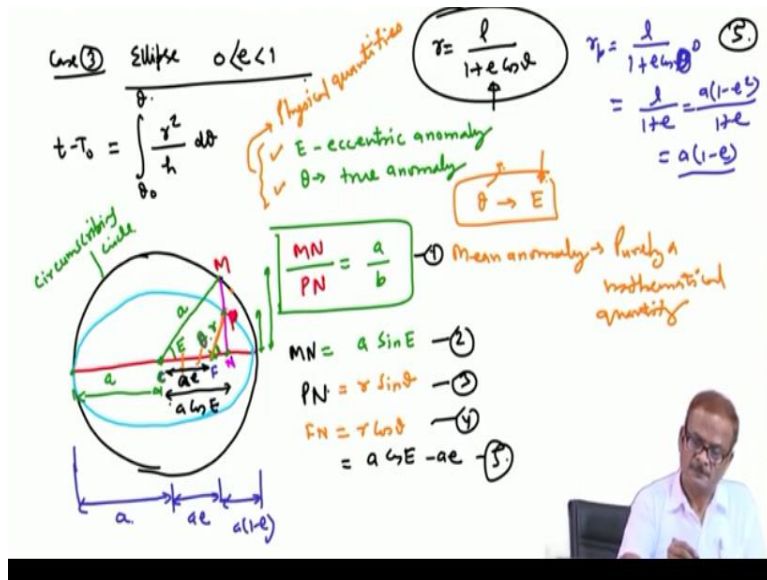 Case ③ Ellipse 0<e<1
Physical quantities
r = l / (1+e Cosθ)
r_p = l / (1+e Cos 0°)
= l / (1+e) = a(1-e²) / (1+e)
= a(1-e)
5.
t-T₀ = ∫_{θ₀}^{θ} r²/h dθ
✓ E - eccentric anomaly
✓ θ → true anomaly
θ → E
Circumscribing circle
MN/PN = a/b —①
Mean anomaly → Purely a
mathematical
quantity
MN = a SinE —②
PN = r Sinθ —③
FN = r Cosθ —④
= a CosE - ae —⑤
M
P
a
r
E
θ
a
C
F
N
ae
a CosE
a
ae
a(1-e)